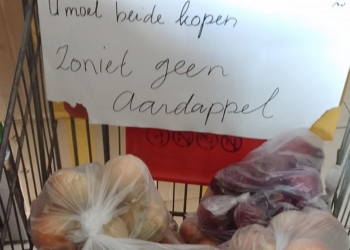 U moet beide kopen
Zoniet geen
aardappel